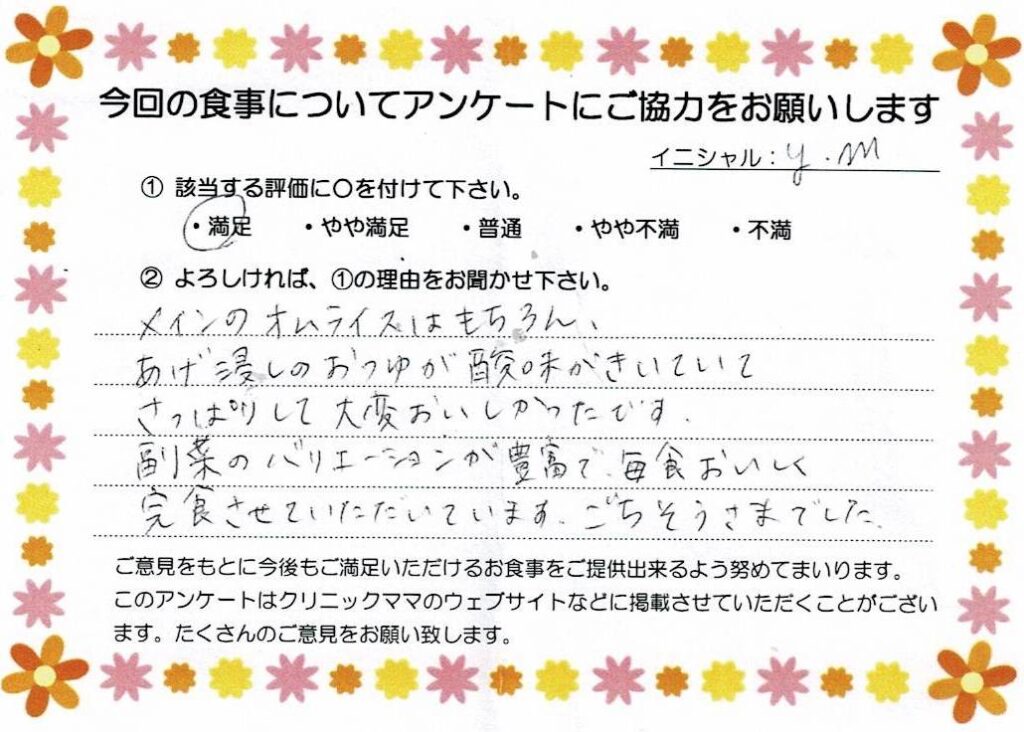 今回の食事についてアンケートにご協力をお願いします
イニシャル：y.m
① 該当する評価に〇を付けて下さい。
・満足 ・やや満足 ・普通 ・やや不満 ・不満
② よろしければ、①の理由をお聞かせ下さい。
メインのオムライスはもちろん、
あげ浸しのおつゆが酸味がきいていて
さっぱりして大変おいしかったです．
副菜のバリエーションが豊富で、毎食おいしく
完食させていただいています。ごちそうさまでした。
ご意見をもとに今後もご満足いただけるお食事をご提供出来るよう努めてまいります。
このアンケートはクリニックママのウェブサイトなどに掲載させていただくことがござい
ます。たくさんのご意見をお願い致します。